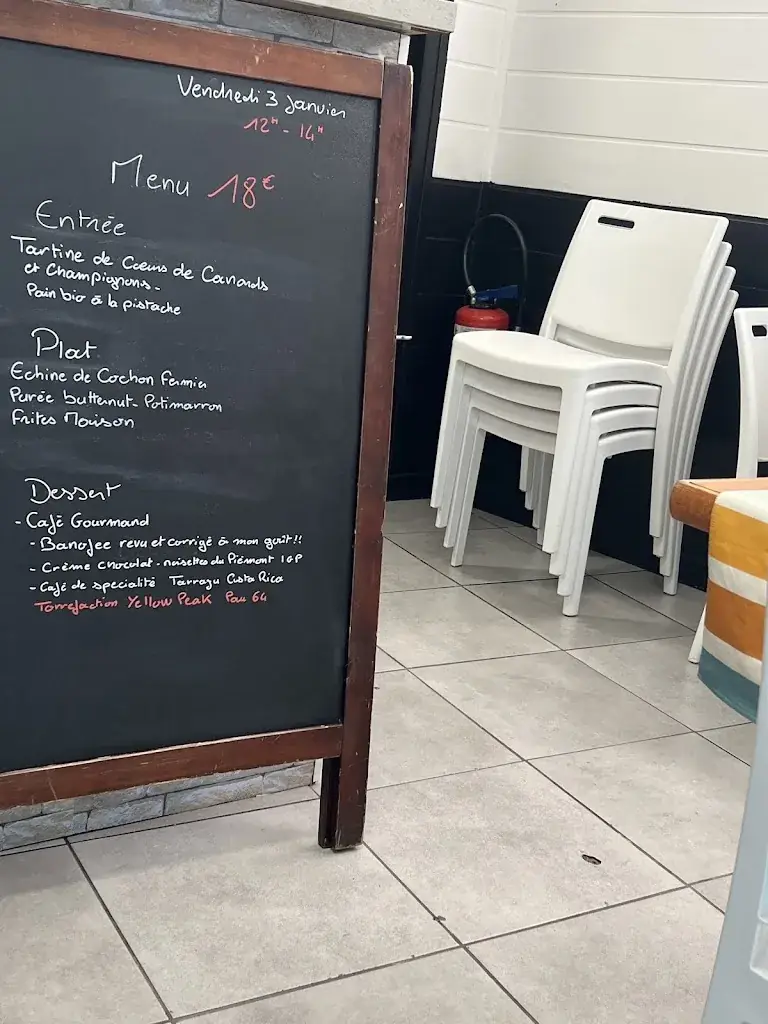 Vendredi 3 Janvier
12H - 14H
Menu 18€
Entrée
Tartine de Cœurs de Canards
et Champignons.
Pain bio à la pistache
Plat
Echine de Cochon Fermier
Purée butternut - Potimarron
Frites Maison
Dessert
- Café Gourmand
- Banofee revu et corrigé à mon goût !!
- Crème chocolat - noisettes du Piémont IGP
- Café de specialité Tarrazu Costa Rica
Torrefaction Yellow Peak Pau 64